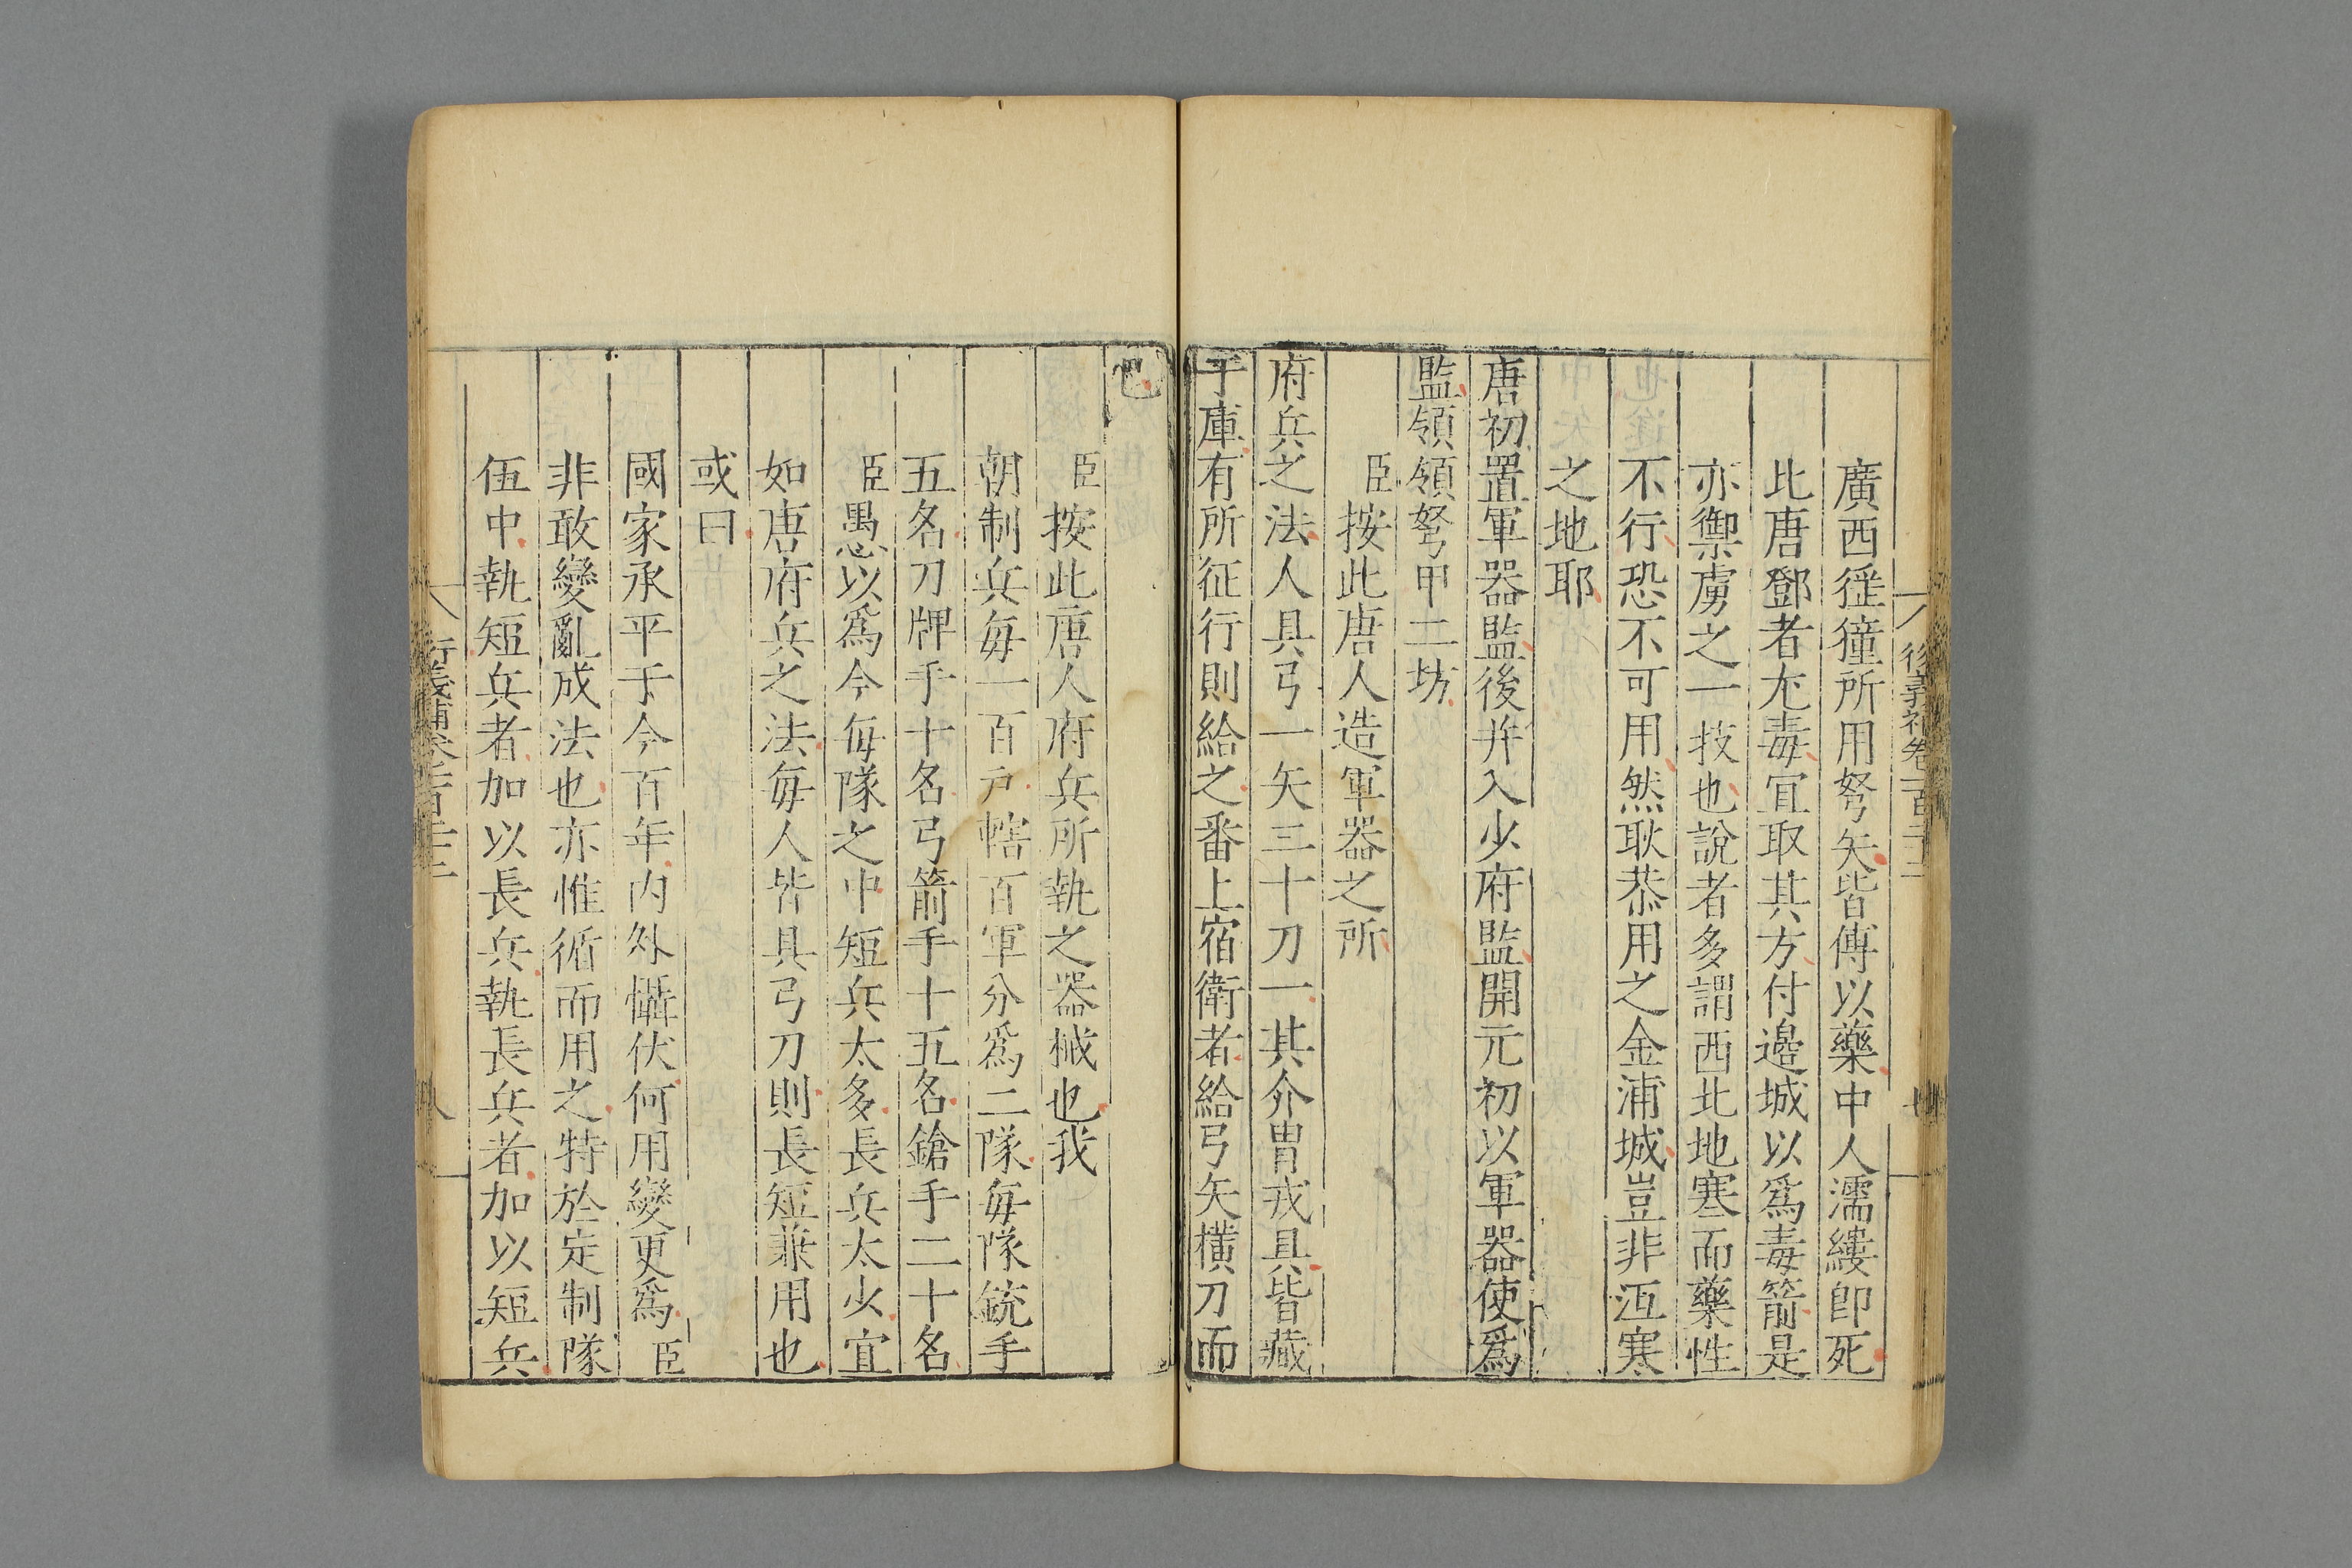 廣西徭獞所用弩矢皆傅以藥中人濡縷卽死
比唐鄧者尤毒宜取其方付邊城以爲毒箭是
亦禦虜之一技也說者多謂西北地寒而藥性
不行恐不可用然耿恭用之金浦城豈非沍寒
之地耶
唐初置軍器監後并入少府監開元初以軍器使爲
監領領弩甲二坊
臣按此唐人造軍器之所
府兵之法人具弓一矢三十刀一其介冑戎具皆藏
于庫有所征行則給之番上宿衛者給弓矢橫刀而
已
臣按此唐人府兵所執之器械也我
朝制兵每一百戶轄百軍分爲二隊每隊銃手
五名刀牌手十名弓箭手十五名鎗手二十名
臣愚以爲今每隊之中短兵太多長兵太少宜
如唐府兵之法每人皆具弓刀則長短兼用也
或曰
國家承平于今百年內外懾伏何用變更爲臣
非敢變亂成法也亦惟循而用之特於定制隊
伍中執短兵者加以長兵執長兵者加以短兵